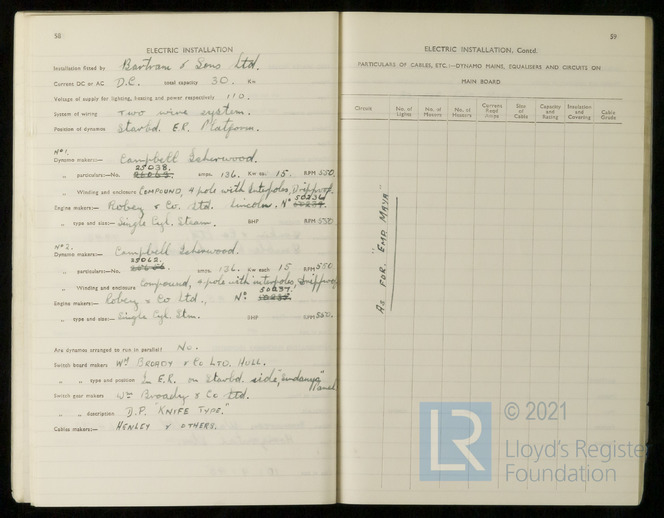 58
ELECTRIC INSTALLATION
Installation fitted by Bartram & Sons Ltd.
Current DC or AC D.C. total capacity 30. Kw
Voltage of supply for lighting, heating and power respectively 110.
System of wiring Two wire system.
Position of dynamos Starbd. E.R. Platform.
Nº 1
Dynamo makers:— Campbell Isherwood.
25038.
„ particulars:—No. amps. 136. Kw each 15. RPM 550.
„ Winding and enclosure COMPOUND, 4 pole with Interpoles, Dripproof.
50236
Engine makers:— Robey & Co. Ltd. Lincoln. Nº
„ type and size:— Single Cyl. Steam. BHP RPM 550
Nº 2.
Dynamo makers:— Campbell Isherwood.
25062.
„ particulars:—No. amps. 136. Kw each 15 RPM 550
„ Winding and enclosure Compound, 4 pole with interpoles, Dripproof
50237.
Engine makers:— Robey & Co Ltd., Nº
„ type and size:— Single Cyl. Stm. BHP RPM 550.
Are dynamos arranged to run in parallel? No.
Switch board makers Wm BROADY & Co LTD. HULL.
„ „ type and position In E.R. on Starbd. side, "Sindanyo"
Panel
Switch gear makers Wm Broady & Co Ltd.
„ „ description D.P. "KNIFE TYPE."
Cables makers:— HENLEY & OTHERS.
59
ELECTRIC INSTALLATION, Contd.
PARTICULARS OF CABLES, ETC.:—DYNAMO MAINS, EQUALISERS AND CIRCUITS ON
MAIN BOARD
Circuit No. of Lights No. of Motors No. of Heaters Current Read Amps Size of Cable Capacity and Rating Insulation and Covering Cable Grade
AS FOR "EMP. MAYA"
LR © 2021
Lloyd's Register
Foundation